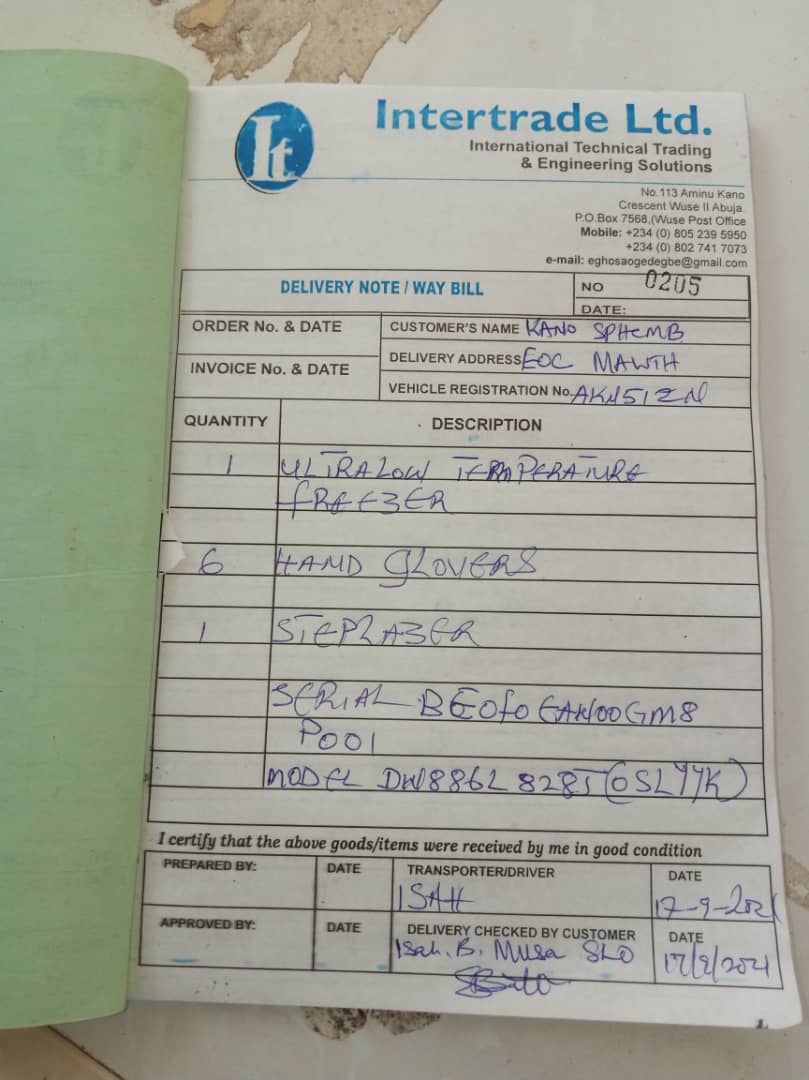 It
Intertrade Ltd.
International Technical Trading
& Engineering Solutions
No.113 Aminu Kano
Crescent Wuse II Abuja.
P.O.Box 7568,(Wuse Post Office
Mobile: +234 (0) 805 239 5950
+234 (0) 802 741 7073
e-mail: eghosaogedegbe@gmail.com
DELIVERY NOTE / WAY BILL
NO 0205
DATE:
ORDER No. & DATE
CUSTOMER'S NAME KANO SPHCMB
DELIVERY ADDRESS EOC MAWTH
INVOICE No. & DATE
VEHICLE REGISTRATION No.
QUANTITY DESCRIPTION
1 ULTRALOW TEMPERATURE
FREEZER
6 HAND GLOVERS
1 STEPLAZER
SERIAL
P001
MODEL DW886L 828J (OSLYYK)
I certify that the above goods/items were received by me in good condition
PREPARED BY: DATE TRANSPORTER/DRIVER DATE
ISAH 17-9-2021
APPROVED BY: DATE DELIVERY CHECKED BY CUSTOMER DATE
Isah. B. Musa SLO 17/9/2021